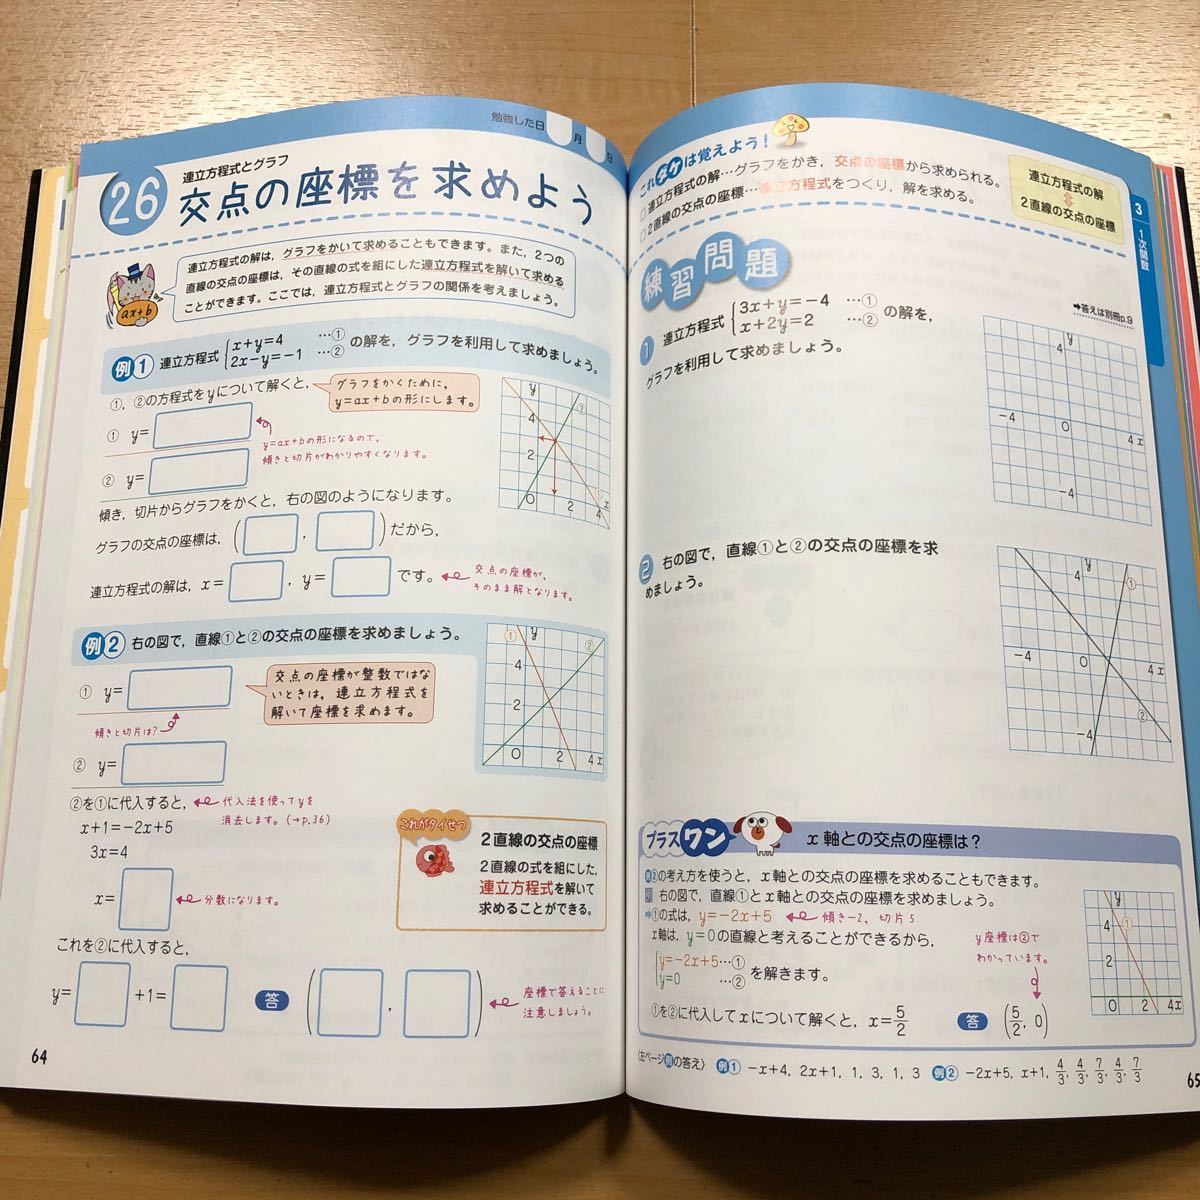 勉強した日 月 日
26
連立方程式とグラフ
交点の座標を求めよう
連立方程式の解は，グラフをかいて求めることもできます。また，2つの
直線の交点の座標は，その直線の式を組にした連立方程式を解いて求める
ことができます。ここでは，連立方程式とグラフの関係を考えましょう。
ax+b
例1 連立方程式 { x+y=4 …① 2x−y=−1 …② の解を，グラフを利用して求めましょう。
①，②の方程式をyについて解くと，
グラフをかくために，
y=ax+bの形にします。
① y=
y=ax+bの形になるので，
傾きと切片がわかりやすくなります。
② y=
傾き，切片からグラフをかくと，右の図のようになります。
グラフの交点の座標は，( , )だから，
連立方程式の解は，x= ，y= です。
交点の座標が，
そのまま解となります。
y
②
4
2
O 2 4 x
例2 右の図で，直線①と②の交点の座標を求めましょう。
① y=
交点の座標が整数ではな
いときは，連立方程式を
解いて座標を求めます。
傾きと切片は?
② y=
① y ②
4
2
O 2 4 x
②を①に代入すると，
代入法を使ってyを
消去します。(→p.36)
x+1=−2x+5
3x=4
x=
分数になります。
これを②に代入すると，
y= +1=
答 ( , )
座標で答えることに
注意しましょう。
これがタイせつ
2直線の交点の座標
2直線の式を組にした，
連立方程式を解いて
求めることができる。
64
これダケは覚えよう!
□連立方程式の解…グラフをかき，交点の座標から求められる。
□2直線の交点の座標…連立方程式をつくり，解を求める。
連立方程式の解
2直線の交点の座標
3
1次関数
練習問題
➡答えは別冊p.9
1 連立方程式 { 3x+y=−4 …① x+2y=2 …② の解を，
グラフを利用して求めましょう。
y
4
−4 O 4 x
−4
2 右の図で，直線①と②の交点の座標を求
めましょう。
y ①
4
−4 O 4 x
②
−4
プラスワン x軸との交点の座標は?
例2の考え方を使うと，x軸との交点の座標を求めることもできます。
例 右の図で，直線①とx軸との交点の座標を求めましょう。
➡①の式は，y=−2x+5
傾き−2，切片5
x軸は，y=0の直線と考えることができるから，
{ y=−2x+5…① y=0 …② を解きます。
y座標は②で
わかっています。
①を②に代入してxについて解くと，x=5/2 答 (5/2, 0)
4
①
2
O 2 4x
〈左ページ例の答え〉 例1 −x+4，2x+1，1，3，1，3 例2 −2x+5，x+1，4/3，4/3，7/3，4/3，7/3
65